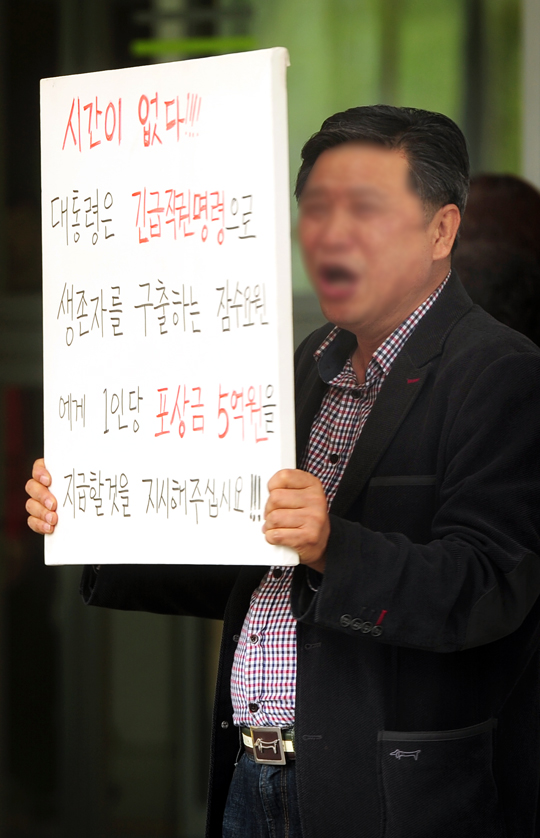 시간이 없다!!!
대통령은 긴급직권명령으로
생존자를 구출하는 잠수요원
에게 1인당 포상금 5억원을
지급할것을 지시해주십시요!!!